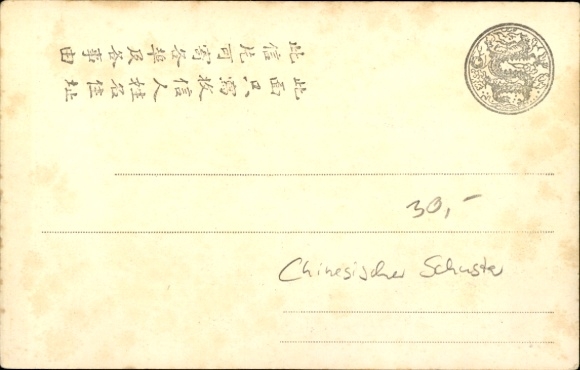 此面只寫收信人姓名住址
此信片可寄各埠及各事由
30,-
Chinesischer Schuster